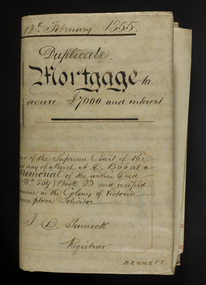 12th February 1855.
Duplicate.
Mortgage to
secure £7000 and interest
of the Supreme Court of the
day of March A.D. 1855 at a
Memorial of the within Deed
No. 559 Book 29 and verified
in the Colony of Victoria
Solicitor
Registrar
BENNETT.